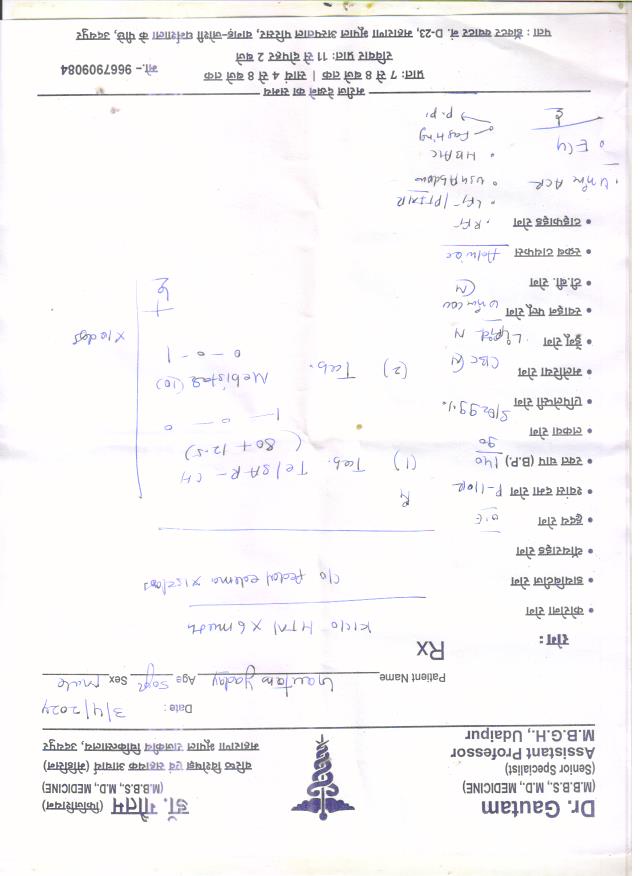 Dr. Gautam
(M.B.B.S., M.D., MEDICINE)
(Senior Specialist)
Assistant Professor
M.B.G.H., Udaipur
डॉ. गौतम (फिजिशियन)
(M.B.B.S., M.D., MEDICINE)
वरिष्ठ विशेषज्ञ एवं सहायक आचार्य (मेडिसिन)
महाराणा भूपाल राजकीय चिकित्सालय, उदयपुर
Date : 3/4/2024
Patient Name Gautam Yadav Age 50yr Sex Male
रोग :
Rx
• कोरोना रोग
K/C/O HTN x 6 month
• डायबिटीज रोग
C/O Pedal edema x 15 days
• थॉयराइड रोग
• हृदय रोग O/E
• श्वांस दमा रोग P-110
• रक्त चाप (B.P.) 140
90
(1) Tab. Telsar-CH
(80 + 12.5)
1 — 0 — 0
• लकवा रोग
• एपिलेप्सी रोग SPO2 99%.
• मलेरिया रोग CBC (N)
(2) Tab. Mebistar (10)
0 - 0 - 1
x 10 days
• डेंगू रोग Lipid N
• स्वाईन फ्लू रोग
• टी.बी. रोग (N)
• स्क्रब टायफस Advice
• टाइफाइड रोग • RFT
• LFT / PT INR
• Urine ACR • USG Abdomen
• HBA1C
• ECG Fasting
P.P.
मरीज देखने का समय
प्रातः 7 से 8 बजे तक | सायं 4 से 8 बजे तक
रविवार प्रातः 11 से दोपहर 2 बजे
मो.- 9667909084
पता : डॉक्टर क्वाटर नं. D-23, महाराणा भूपाल अस्पताल परिसर, बागड़-जोशी धर्मशाला के पीछे, उदयपुर